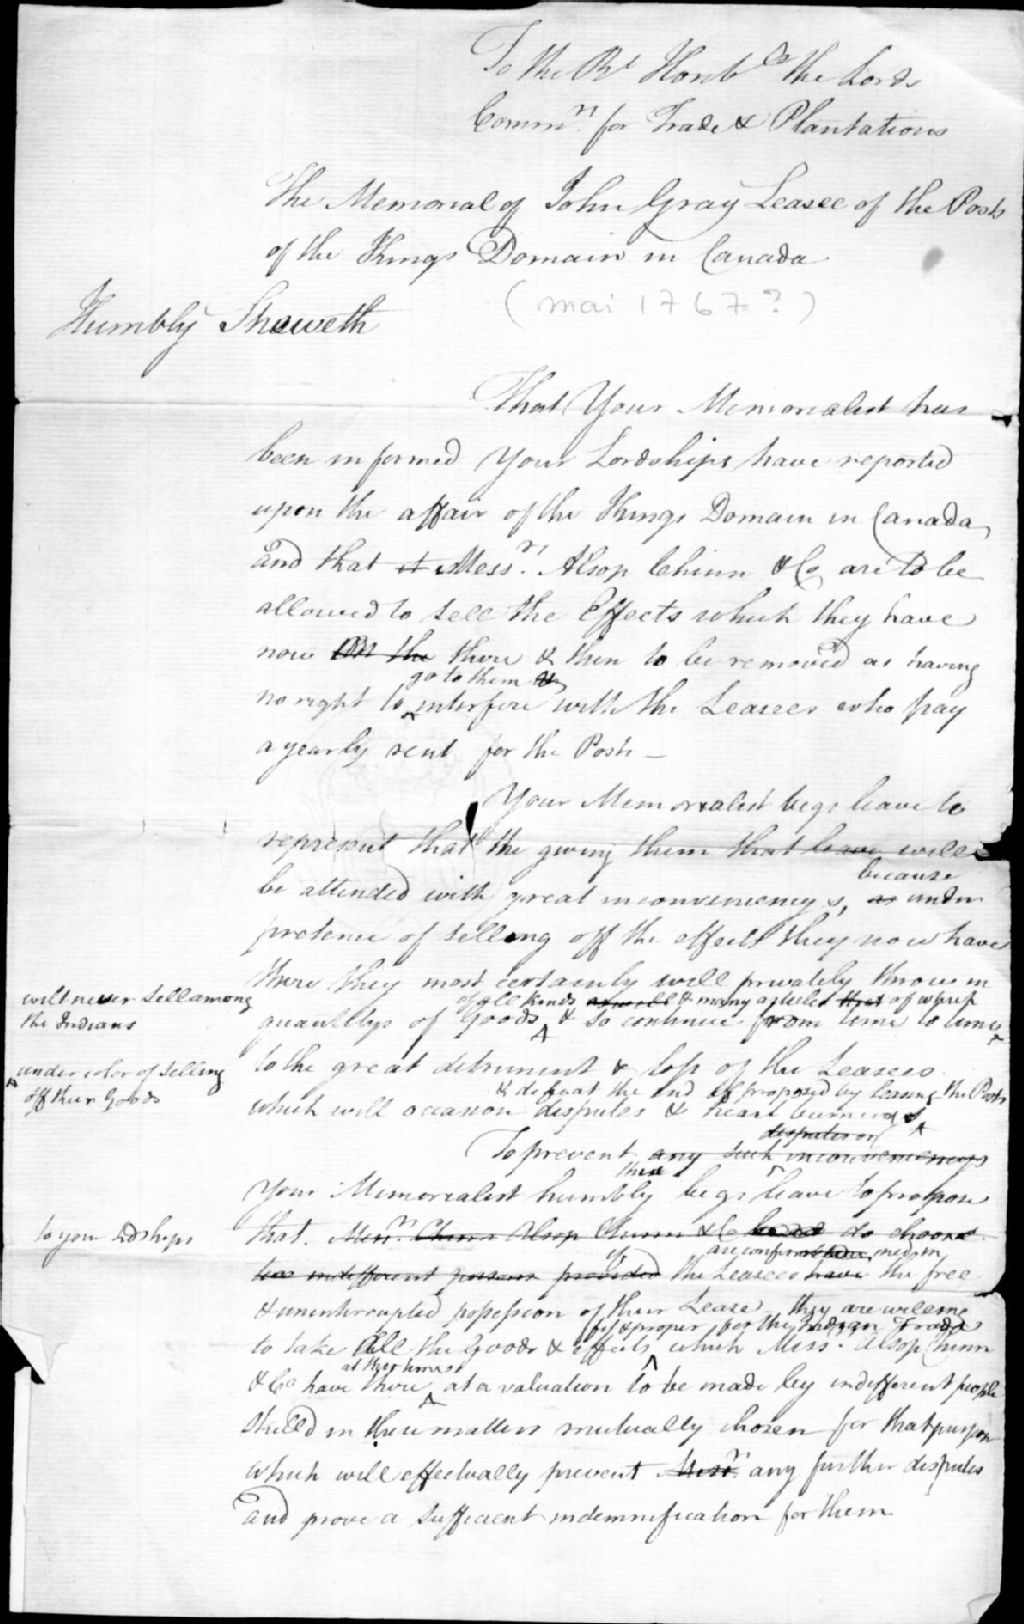 To the Rt Honble the Lords
Commrs. for Trade & Plantations
The Memorial of John Gray Leasee of the Posts
of the Kings Domain in Canada
(mai 1767?)
Humbly Sheweth
That Your Memorialist has
been informed Your Lordships have reported
upon the affair of the Kings Domain in Canada,
and that it Messrs. Alsop Chinn & Co are to be
allowed to sell the Effects which they have
now the there & then to be removed as having
go to them
no right to interfere with the Leasees who pay
a yearly rent for the Posts —
Your Memorialist begs leave to
represent that the giving them that leave will
because
be attended with great inconveniencys, as under
pretence of selling off the effects they now have
there they most certainly will privately throw in
will never sell among
the Indians
of all kinds & many articles that of which
quantitys of Goods & so continue from time to time
under color of selling
off their Goods
to the great detriment & loss of the Leasees
& defeat the end proposed by leasing the Posts
which will occasion disputes & heart burnings
disputes or
To prevent any such inconveniencys
these
Your Memorialist humbly begs leave to propose
to your Ldships
that. Messrs. Chinn Alsop Chinn & Co do choose
if are confirmed in
two indifferent persons provided the Leasees have the free
& uninterrupted possession of their Lease they are willing
fit & proper for the Indian Trade
to take all the Goods & effects which Messrs. Alsop Chinn
at this time
& Co have there at a valuation to be made by indifferent people
skilld in these matters mutually chosen for that purpose
which will effectually prevent Messrs. any further disputes
and prove a sufficient indemnification for them